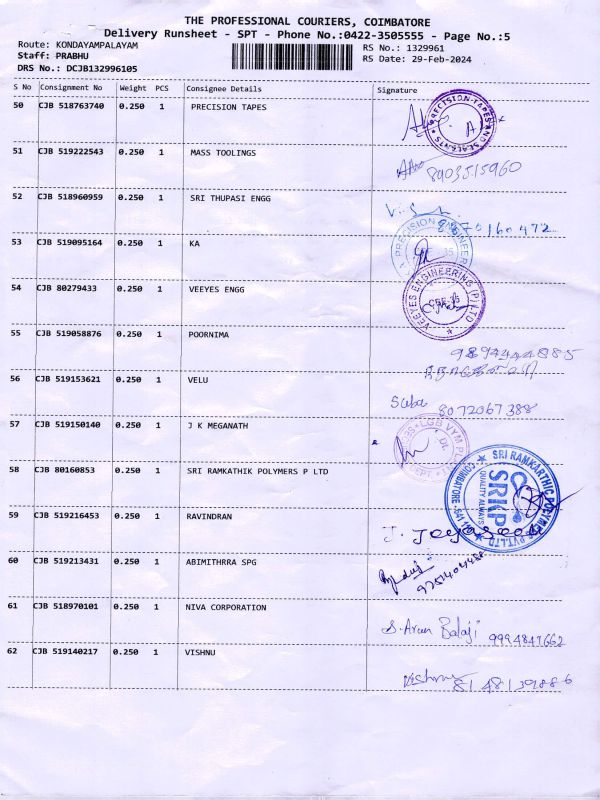 THE PROFESSIONAL COURIERS, COIMBATORE
Delivery Runsheet - SPT - Phone No.:0422-3505555 - Page No.:5
Route: KONDAYAMPALAYAM
Staff: PRABHU
DRS No.: DCJB132996105
RS No.: 1329961
RS Date: 29-Feb-2024
S No Consignment No Weight PCS Consignee Details Signature
50 CJB 518763740 0.250 1 PRECISION TAPES
51 CJB 519222543 0.250 1 MASS TOOLINGS
8903515960
52 CJB 518960959 0.250 1 SRI THUPASI ENGG
53 CJB 519095164 0.250 1 KA
PRECISION ENGINEER
54 CJB 80279433 0.250 1 VEEYES ENGG
VEEYES ENGINEERING (P) LTD
55 CJB 519058876 0.250 1 POORNIMA
56 CJB 519153621 0.250 1 VELU
Suba 8072067388
57 CJB 519150140 0.250 1 J K MEGANATH
58 CJB 80160853 0.250 1 SRI RAMKATHIK POLYMERS P LTD
SRI RAMKARTHIC POLYMERS PVT.LTD
COIMBATORE-641 110
SRKP
QUALITY ALWAYS
59 CJB 519216453 0.250 1 RAVINDRAN
60 CJB 519213431 0.250 1 ABIMITHRRA SPG
61 CJB 518970101 0.250 1 NIVA CORPORATION
S. Arun Balaji 9994847662
62 CJB 519140217 0.250 1 VISHNU
Vishnu 8148139886